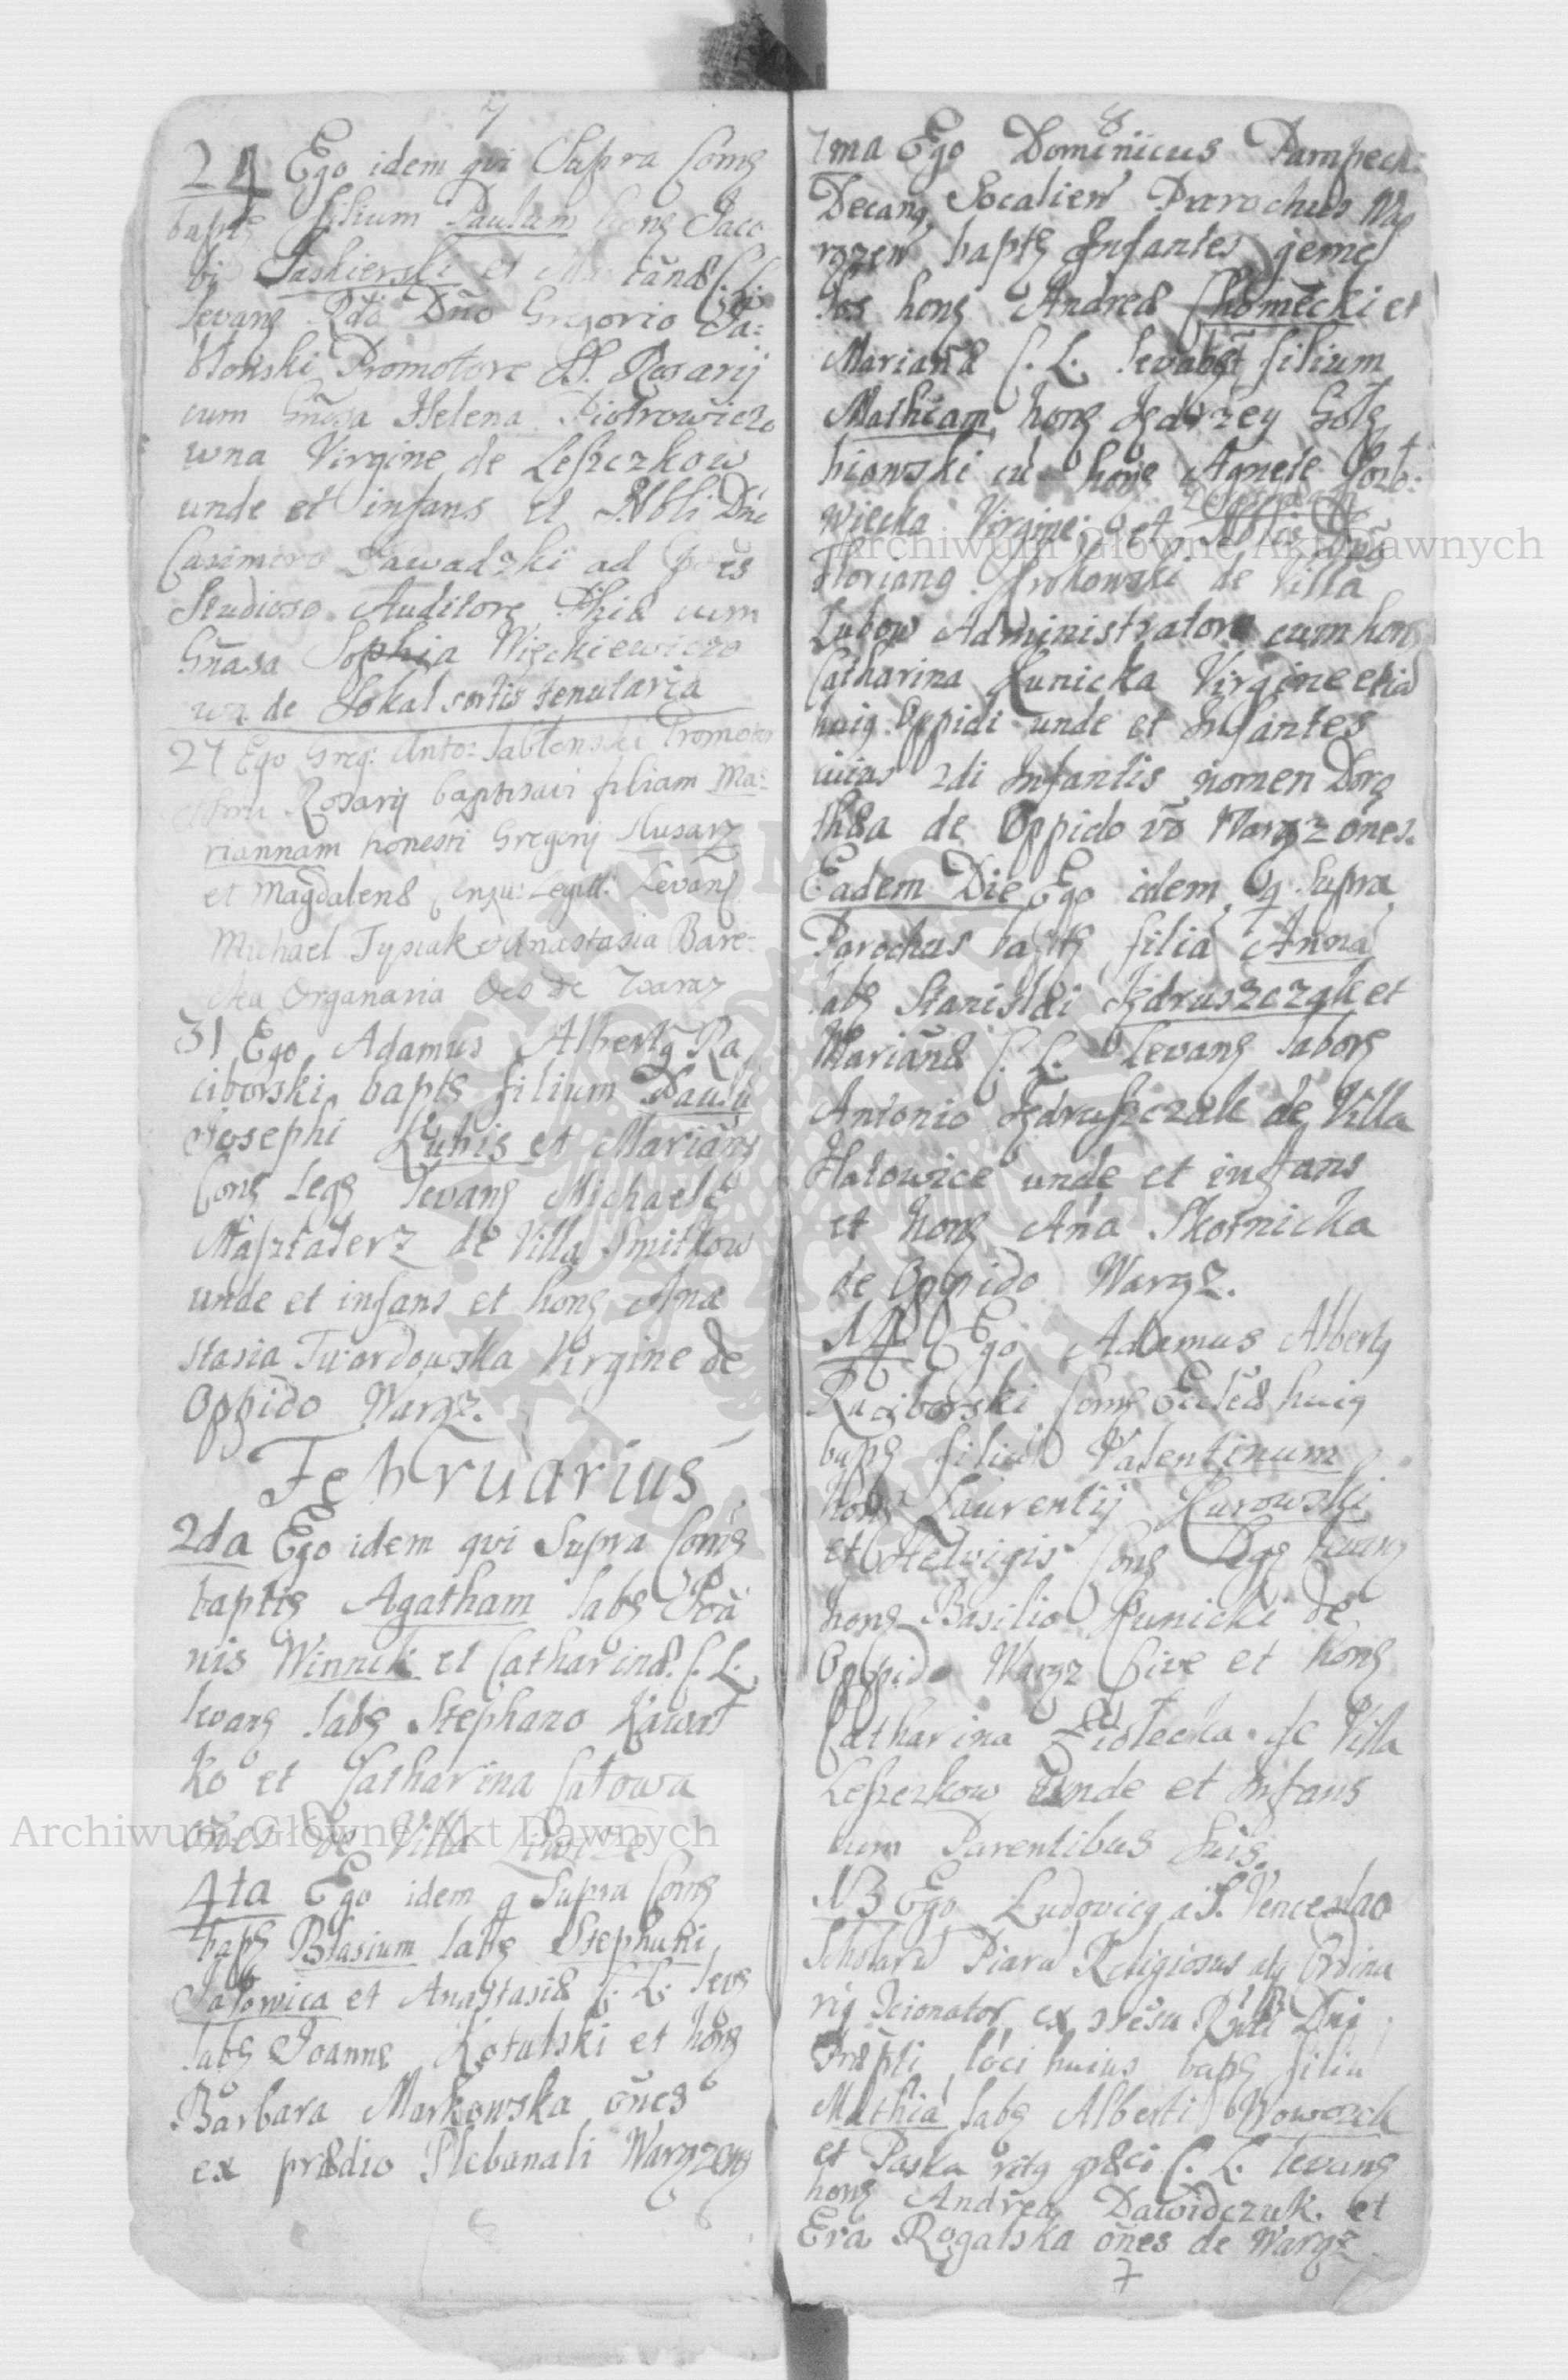 7
24 Ego idem qui Supra Coms
bapts filium Paulum hons Jaco
bi Paskierski et C. L.
levans Rdo Dño Gregorio Ja=
błonski Promotore SS. Rosarij
cum Gñosa Helena Piotrowiczo
wna Virgine de Leszczkow
unde et infans et Dño
Casimiro Zawadzki ad
Studioso Auditore Phia cum
Gñasa Sophia Więckiewiczo
wna de Sokal sortis tenutaria
27 Ego Greg: Anto: Jabłonski Promotor
Rosarij baptisavi filiam Ma=
riannam honesti Gregorij Slusarz
et Magdalenæ Conju: Legitt: Levans
Michael Typiak et Anastasia Bare=
cka Organaria de Waręz
31 Ego Adamus Albertq Ra
ciborski bapts filium Paulū
Josephi Kuhis et Marians
Cons Legs levans Michaele
Maształerz de Villa Smitkow
unde et infans et hons Ana
stasia Twardowska Virgine de
Oppido Waręz.
Februarius
2da Ego idem qui Supra Coms
baptis Agatham labs Joā
nis Winnik et Catharinæ C. L.
levans labs Stephano Kawał
ko et Catharina Sałowa
oñes de Villa
4ta Ego idem q Supra Coms
baps Blasium labs Stephani
Sałowica et Anastasiæ C. L. levs
labs Joanne Kotulski et hons
Barbara Markowska oñes
ex prædio Plebanali Waręzens
8
7ma Ego Dominicus Pampech:
Decanq Socalien Parochus Wa
ręzen bapts Infantes geme
los hons Andreæ Chomecki et
Marianæ C. L. levabat filium
Mathiam hons Jędrzey Gołę
biowski cū hons Agnete Gorb:
wiecka Virgine; et
Florianq Grokowski de Villa
Łubow Administratore cum hons
Catharina Kunicka Virgine etia
huiq Oppidi unde et Infantes
cuius 2di Infantis nomen Doro
thæa de Oppido vō Waręzones.
Eadem Die Ego idem q Supra
Parochus bapts filiā Annā
labs Stanislai Jędruszczak et
Marianæ C. L. Levans labors
Antonio Jędruszczak de Villa
Hatowice unde et infans
et hons Aña Skotnicka
de Oppido Waręz.
14 Ego Adamus Albertq
Raciborski Coms Eccleæ huiq
baps filiū Valentinum
hons Laurentij Kurowski
et Hedvigis Cons Legs levans
hons Basilio Kunicki de
Oppido Waręz Cive et hons
Catharina Ziołecka de Villa
Leszczkow unde et Infans
cum Parentibus Suis.
13 Ego Ludovicq a S. Venceslao
Scholarū Piarū Religiosus atq Ordina
riq Ccionator ex Dni
Præpti loci huius baps filiū
Mathiā labs Alberti Wowczek
et Paska ritq græci C. L. levans
hons Andrea Dawidczuk et
Eva Rogalska oñes de Waręz
7
Archiwum Główne Akt Dawnych
Archiwum Główne Akt Dawnych
ARCHIWUM GŁÓWNE AKT DAWNYCH